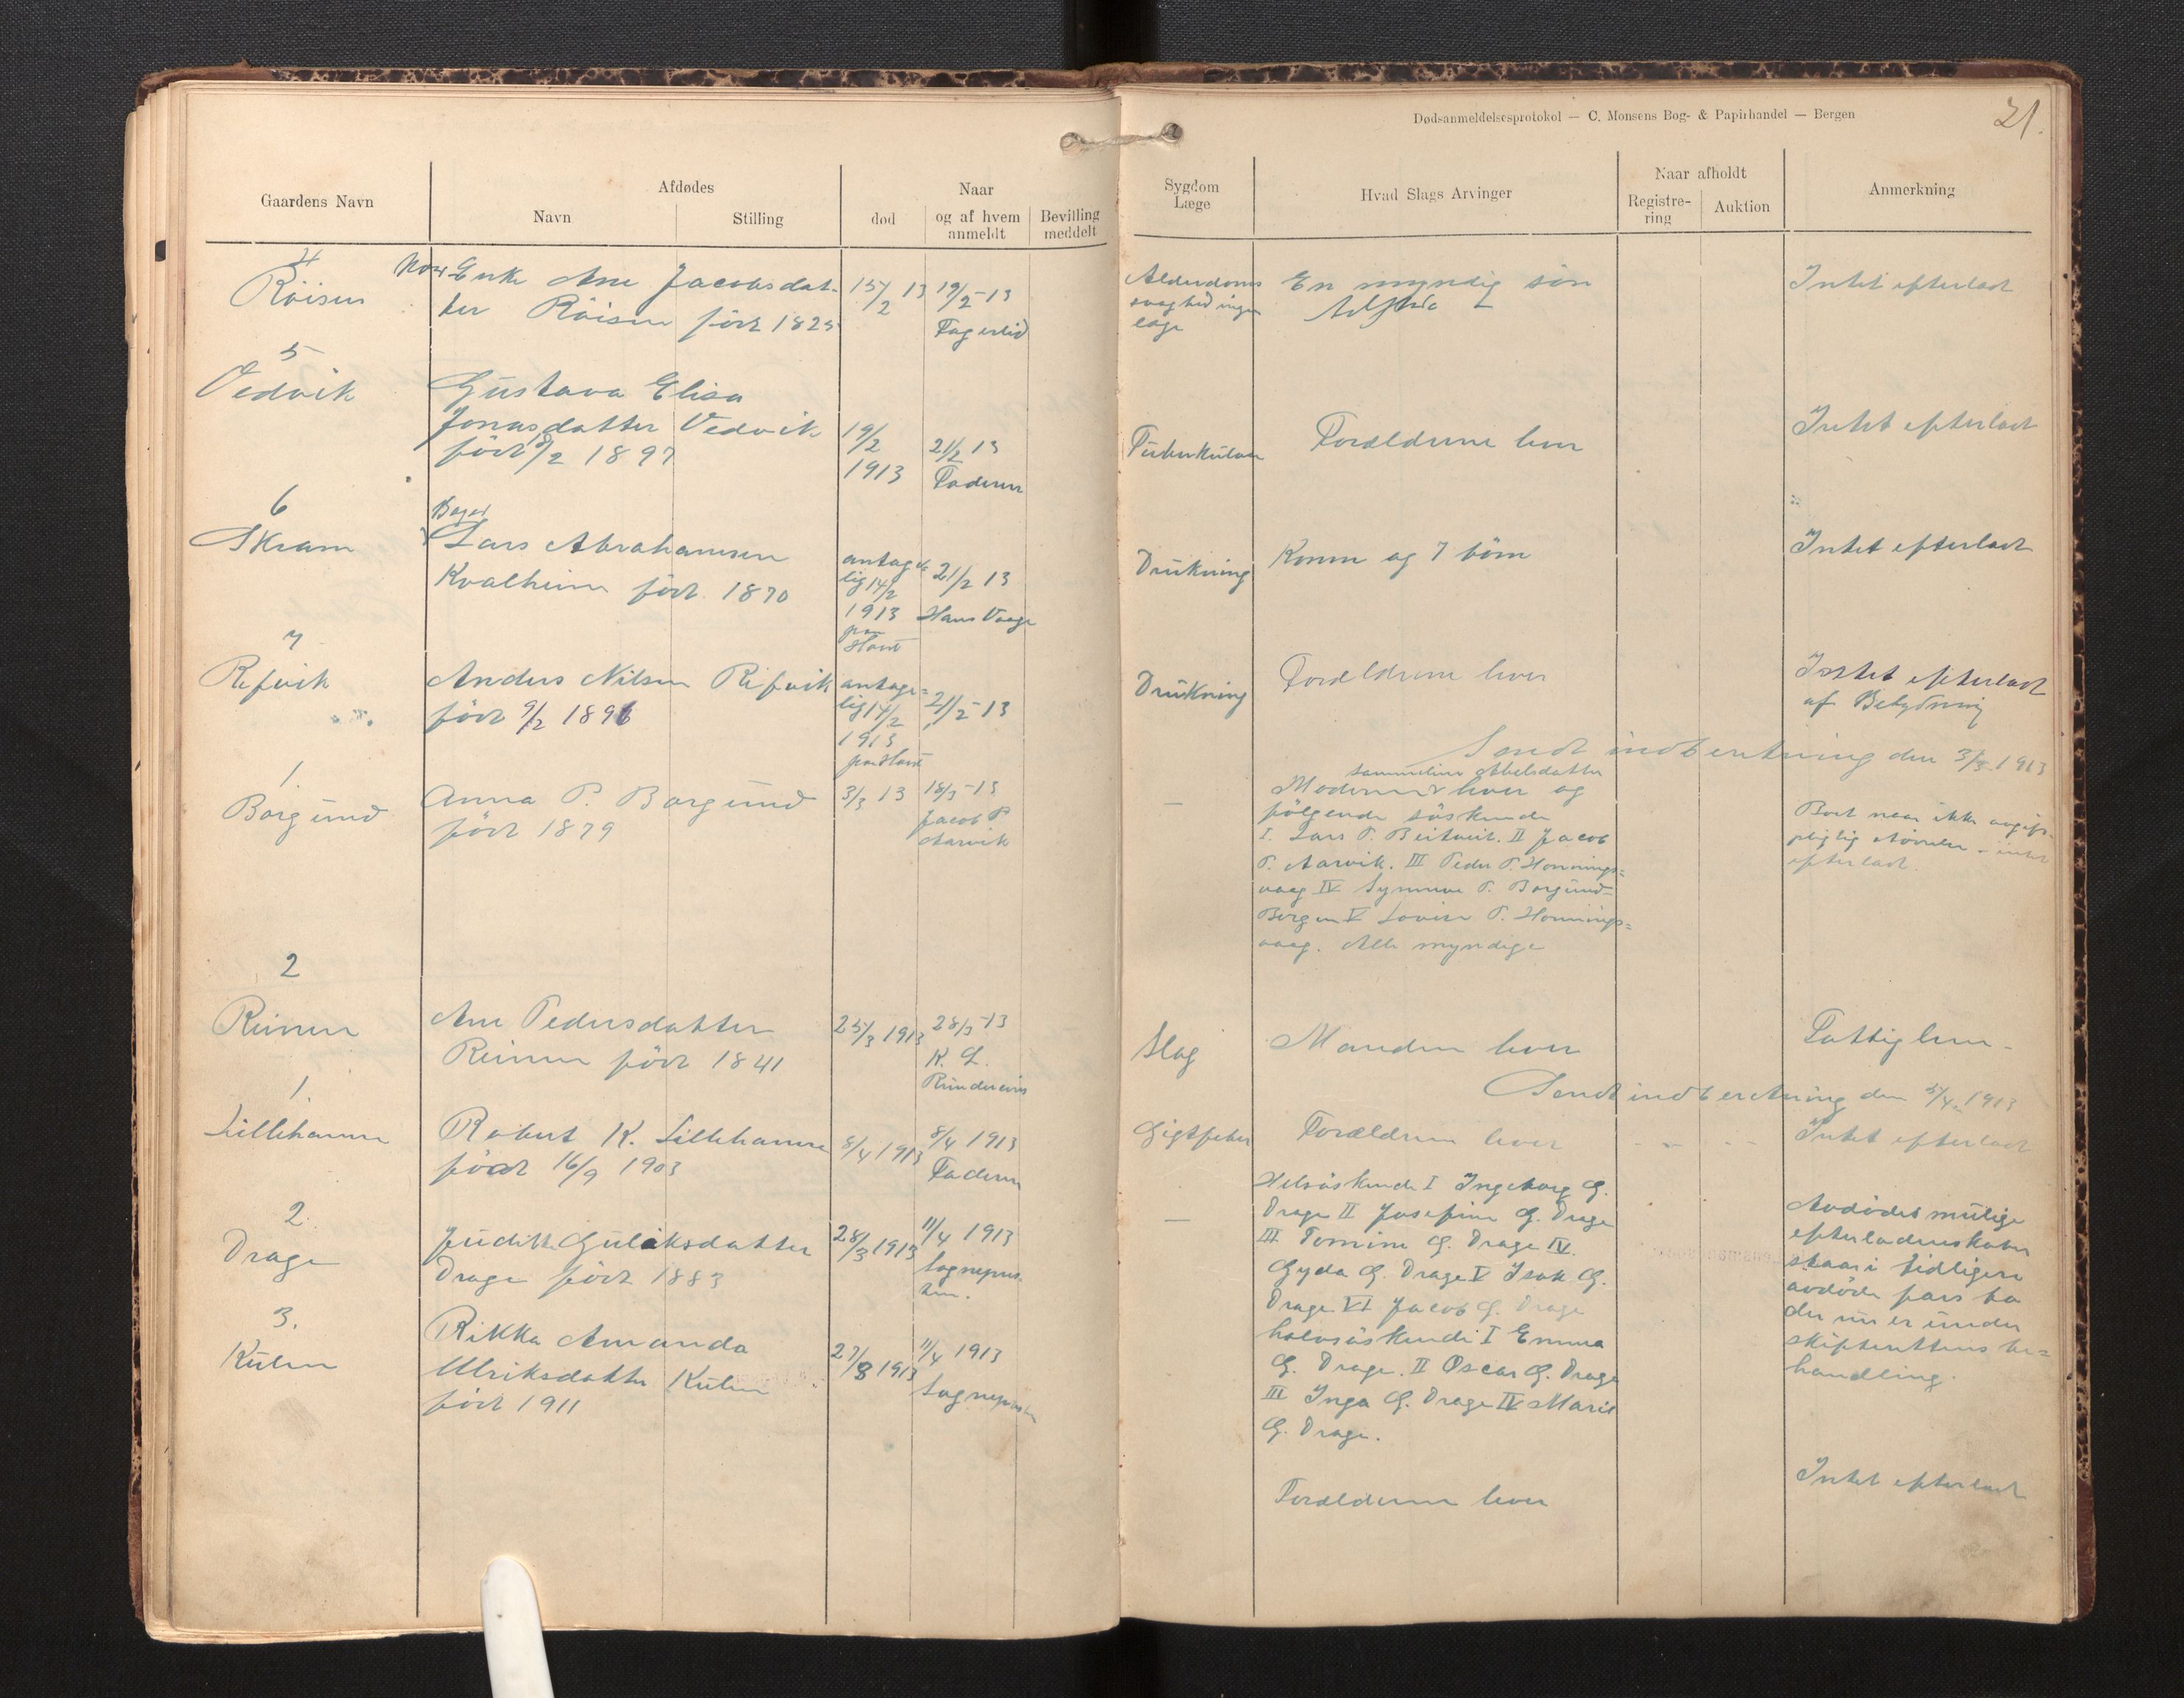 Dødsanmeldelsesprotokol — C. Monsens Bog- & Papirhandel — Bergen
21.
Gaardens Navn
Afdødes
Navn
Stilling
Naar
død
og af hvem anmeldt
Bevilling meddelt
Sygdom
Læge
Hvad Slags Arvinger
Naar afholdt
Registrering
Auktion
Anmerkning
4
Röisen
Enke Ane Jacobsdat-
ter Röisen född 1825
15/2 13
19/2-13
Fagerlid
Alderdoms
svaghed ingen
læge
En myndig sön
Intet efterladt
5
Vedvik
Gustava Elisa
Jonasdatter Vedvik
född /2 1897
19/2
1913
21/2 13
Faderen
Tuberkulose
Forældrene lever
Intet efterladt
6
Skram
Lars Abrahamsen
Kvalheim född 1870
antage
lig 14/2
1913
paa
Havet
21/2 13
Hans Vaage
Drukning
Konen og 7 börn
Intet efterladt
7
Refvik
Anders Nilsen Refvik
född 9/2 1896
antage=
lig 14/2
1913
paa Havet
21/2-13
Drukning
Forældrene lever
Intet efterladt
af Betydning
Sendt indberetning den 3/3 1913
1.
Borgund
Anna P. Borgund
född 1879
3/3 13
18/3-13
Jacob P
Aarvik
—
Abelsdatter
Moderen lever og
følgende söskende
I. Lars P. II Jacob
P. Aarvik. III Peder P. Honnings=
vaag IV Synneve P. Borgund
Bergen V Lovise P. Honnings=
vaag. Alle myndige
Boet naar ikke avgifts-
pligtig Störrelse - intet
efterladt.
2
Reimen
Ane Pedersdatter
Reimen född 1841
25/3 1913
28/3-13
K. L.
Slag
Manden lever
Fattiglem -
Sendt indberetning den 5/4 1913
1.
Lillehamre
Robert K. Lillehamre
född 16/9 1903
8/4 1913
8/4 1913
Faderen
Gigtfeber
Forældrene lever
Intet efterladt
2.
Drage
Judithe Guliksdatter
Drage född 1883
28/3 1913
11/4 1913
Sognepres-
ten.
—
Helsöskende I Ingeborg G.
Drage II Josefine G. Drage
III Tomine G. Drage IV.
Gyda G. Drage V Isak G.
Drage VI Jacob G. Drage
halvsöskende I Emma
G. Drage. II Oscar G. Drage
III Inga G. Drage IV Marie
G. Drage.
Avdödes mulige
efterladenskaber
staar i tidligere
avdöde fars bo
der nu er under
skifterettens be=
handling.
3.
Kulen
Rikka Amanda
Ulriksdatter Kulen
född 1911
27/3 1913
11/4 1913
Sognepresten
Forældrene lever
Intet efterladt